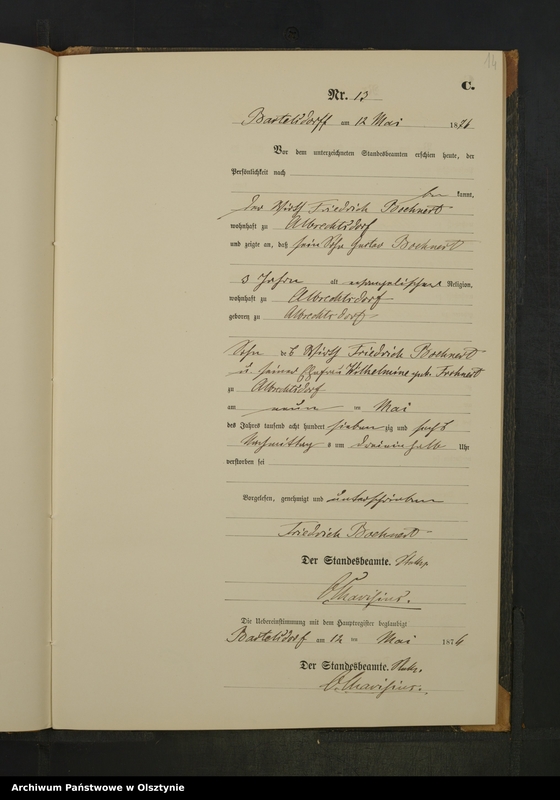 14
C.
Nr. 13
Bartelsdorff am 12 Mai 1876
Vor dem unterzeichneten Standesbeamten erschien heute, der
Persönlichkeit nach
be kannt,
der Wirth Friedrich Boehnert
wohnhaft zu Albrechtsdorf
und zeigte an, daß sein Sohn Gustav Boehnert
3 Jahre alt evangelischer Religion,
wohnhaft zu Albrechtsdorf
geboren zu Albrechtsdorf
Sohn des Wirth Friedrich Boehnert
u seiner Ehefrau Wilhelmine geb.
zu Albrechtsdorf
am neun ten Mai
des Jahres tausend acht hundert sieben zig und sechs
Nachmittag s um dreieinhalb Uhr
verstorben sei
Vorgelesen, genehmigt und unterschrieben
Friedrich Boehnert
Der Standesbeamte.
Die Uebereinstimmung mit dem Hauptregister beglaubigt
Bartelsdorf am 12 ten Mai 1876
Der Standesbeamte.
Archiwum Państwowe w Olsztynie